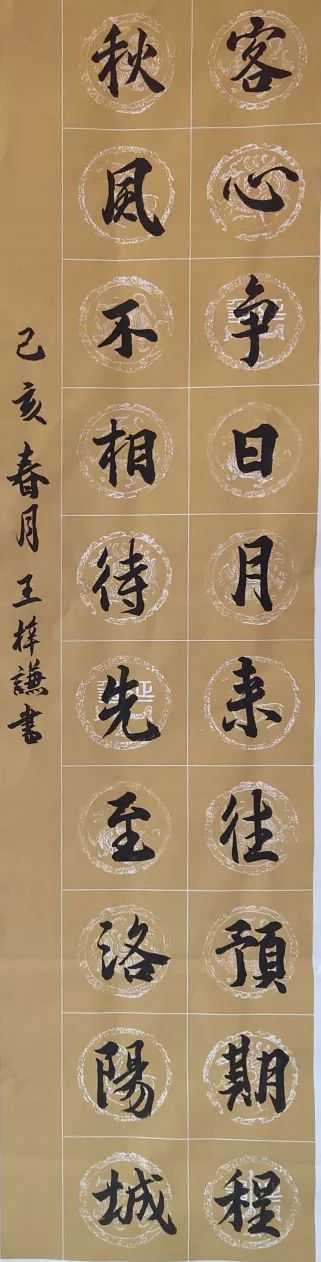 客心争日月来往預期程
秋風不相待先至洛陽城
己亥春月王梓謙書